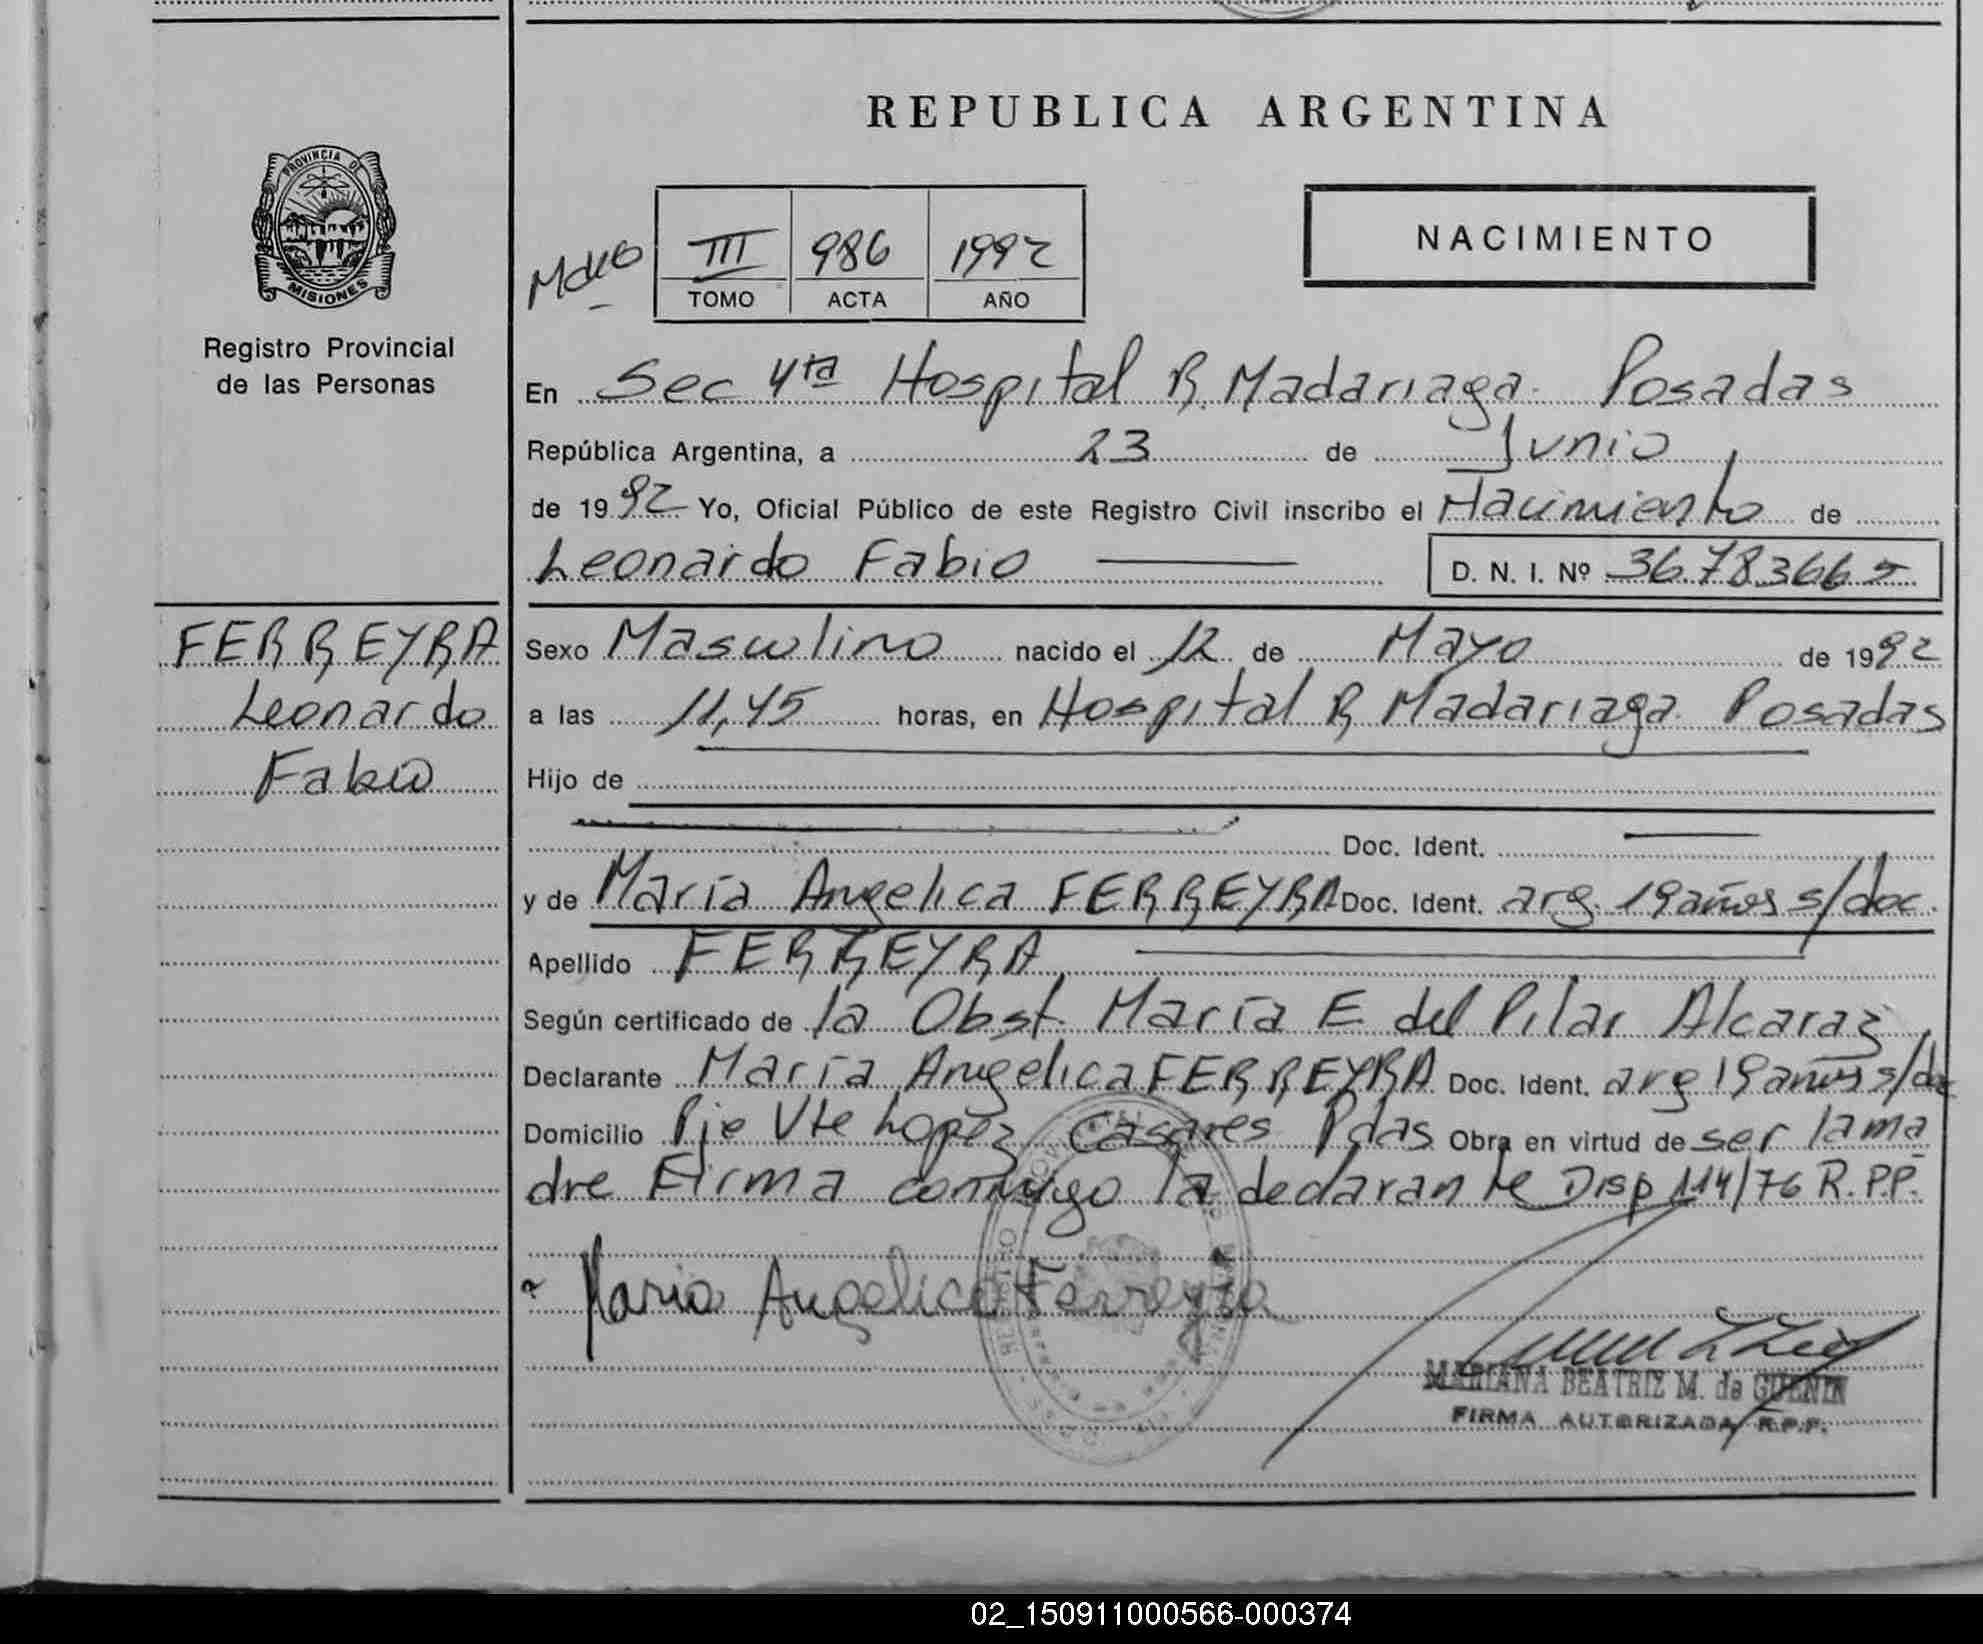 REPUBLICA ARGENTINA
PROVINCIA DE
MISIONES
Registro Provincial
de las Personas
III 986 1992
TOMO ACTA AÑO
NACIMIENTO
En Sec 4ta Hospital R. Madariaga. Posadas
República Argentina, a 23 de Junio
de 1992 Yo, Oficial Público de este Registro Civil inscribo el Nacimiento de
Leonardo Fabio D. N. I. Nº 36.783.665
FERREYRA
Leonardo
Fabio
Sexo Masculino nacido el 12 de Mayo de 1992
a las 11,45 horas, en Hospital R Madariaga. Posadas
Hijo de
Doc. Ident.
y de María Angelica FERREYRA Doc. Ident. arg. 19 años s/doc.
Apellido FERREYRA
Según certificado de la Obst. María E del Pilar Alcaraz
Declarante María Angelica FERREYRA Doc. Ident. arg 19 años s/doc
Domicilio Pje Vte Lopez Casares Pdas Obra en virtud de ser la ma
dre Firma conmigo la declarante Disp 114/76 R.P.P.
Maria Angelica Ferreyra
MARIANA BEATRIZ M. de GUENIN
FIRMA AUTORIZADA R.P.P.
02_150911000566-000374